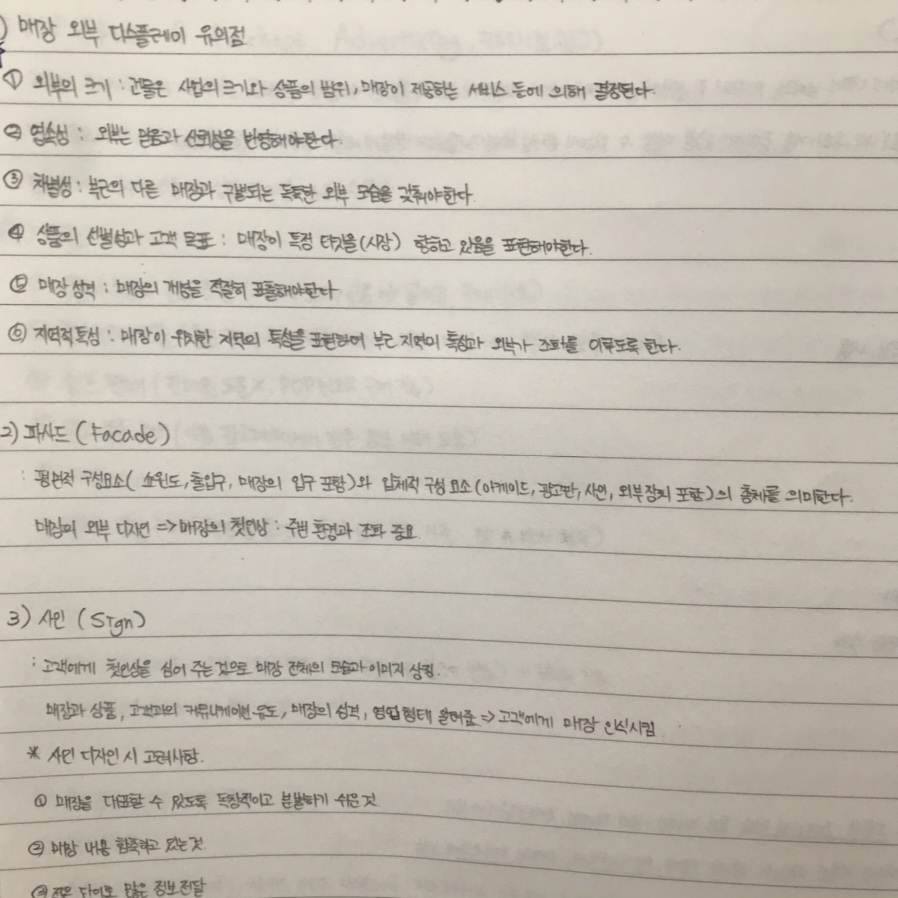 ) 매장 외부 디스플레이 유의점
① 외부의 크기 : 건물은 사업의 크기와 상품의 범위, 매장이 제공하는 서비스 등에 의해 결정된다.
② 영속성 : 외부는 믿음과 신뢰성을 반영해야한다.
③ 차별성 : 부근의 다른 매장과 구별되는 독특한 외부 모습을 갖춰야한다.
④ 상품의 선별성과 고객 목표 : 매장이 특정 타깃을(시장) 향하고 있음을 표현해야한다.
⑤ 매장 성격 : 매장의 개성을 적절히 표출해야한다
⑥ 지역적특성 : 매장이 위치한 지역의 특성을 표현하여 부근 지역의 특성과 외부가 조화를 이루도록 한다.
2) 파사드 (Facade)
: 평면적 구성요소( 쇼윈도, 출입구, 매장의 입구 포함)와 입체적 구성 요소(아케이드, 광고판, 사인, 외부장치 포함)의 총체를 의미한다.
매장의 외부 디자인 => 매장의 첫인상 : 주변 환경과 조화 중요
3) 사인 (Sign)
: 고객에게 첫인상을 심어 주는것으로 매장 전체의 모습과 이미지 상징.
매장과 상품, 고객과의 커뮤니케이션 유도, 매장의 성격, 영업형태 알려줌 => 고객에게 매장 인식시킴
* 사인 디자인 시 고려사항.
① 매장을 대표할 수 있도록 독창적이고 분별하기 쉬운것
② 매장 내용 함축하고 있는것
③ 적은 단어로 많은 정보전달